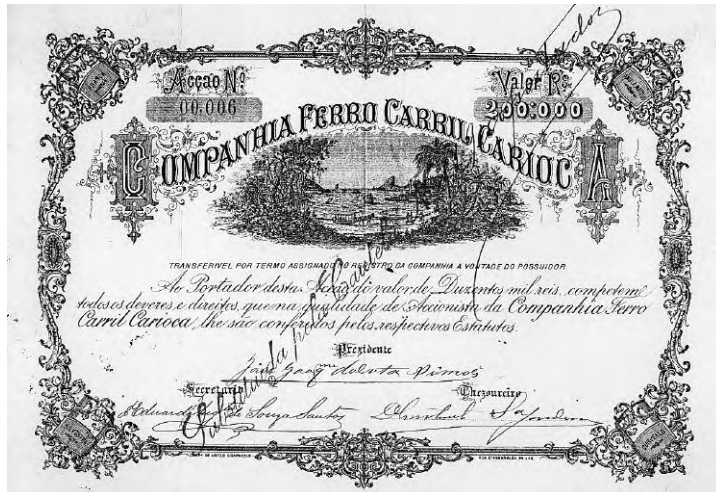 Acção Nº
00.006
Valor Rs
200:000
COMPANHIA FERRO CARRIL CARIOCA
TRANSFERIVEL POR TERMO ASSIGNADO NO REGISTRO DA COMPANHIA A VONTADE DO POSSUIDOR
Ao Portador desta Acção do valor de Duzentos mil reis, competem
todos os deveres e direitos, que na qualidade de Accionista da Companhia Ferro
Carril Carioca, lhe são conferidos pelos respectivos Estatutos.
Prezidente
Secretario
Thezoureiro
de Souza Santos
Substituida